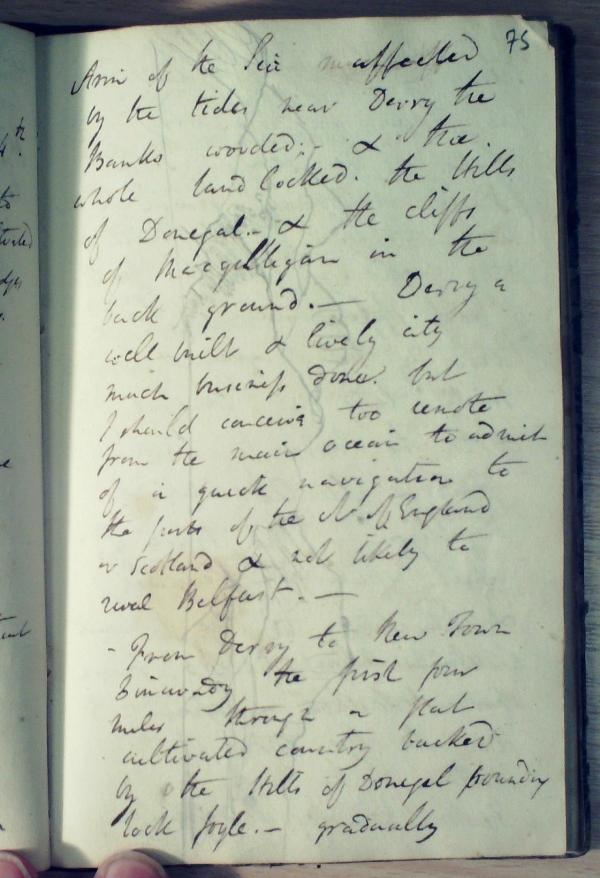 75
Arm of the Sea unaffected
by the tides near Derry the
Banks wooded; - & the
whole land locked. the Hills
of Donegal. - & the cliffs
of Macgilligan in the
back ground. — Derry a
well built & lively city
much business done. but
I should conceive too remote
from the main ocean to admit
of a quick navigation to
the ports of the N. of England
or Scotland & not likely to
rival Belfast. —
- From Derry to New Town
the first four
miles through a flat
cultivated country backed
by the Hills of Donegal bounding
lock foyle. - gradually